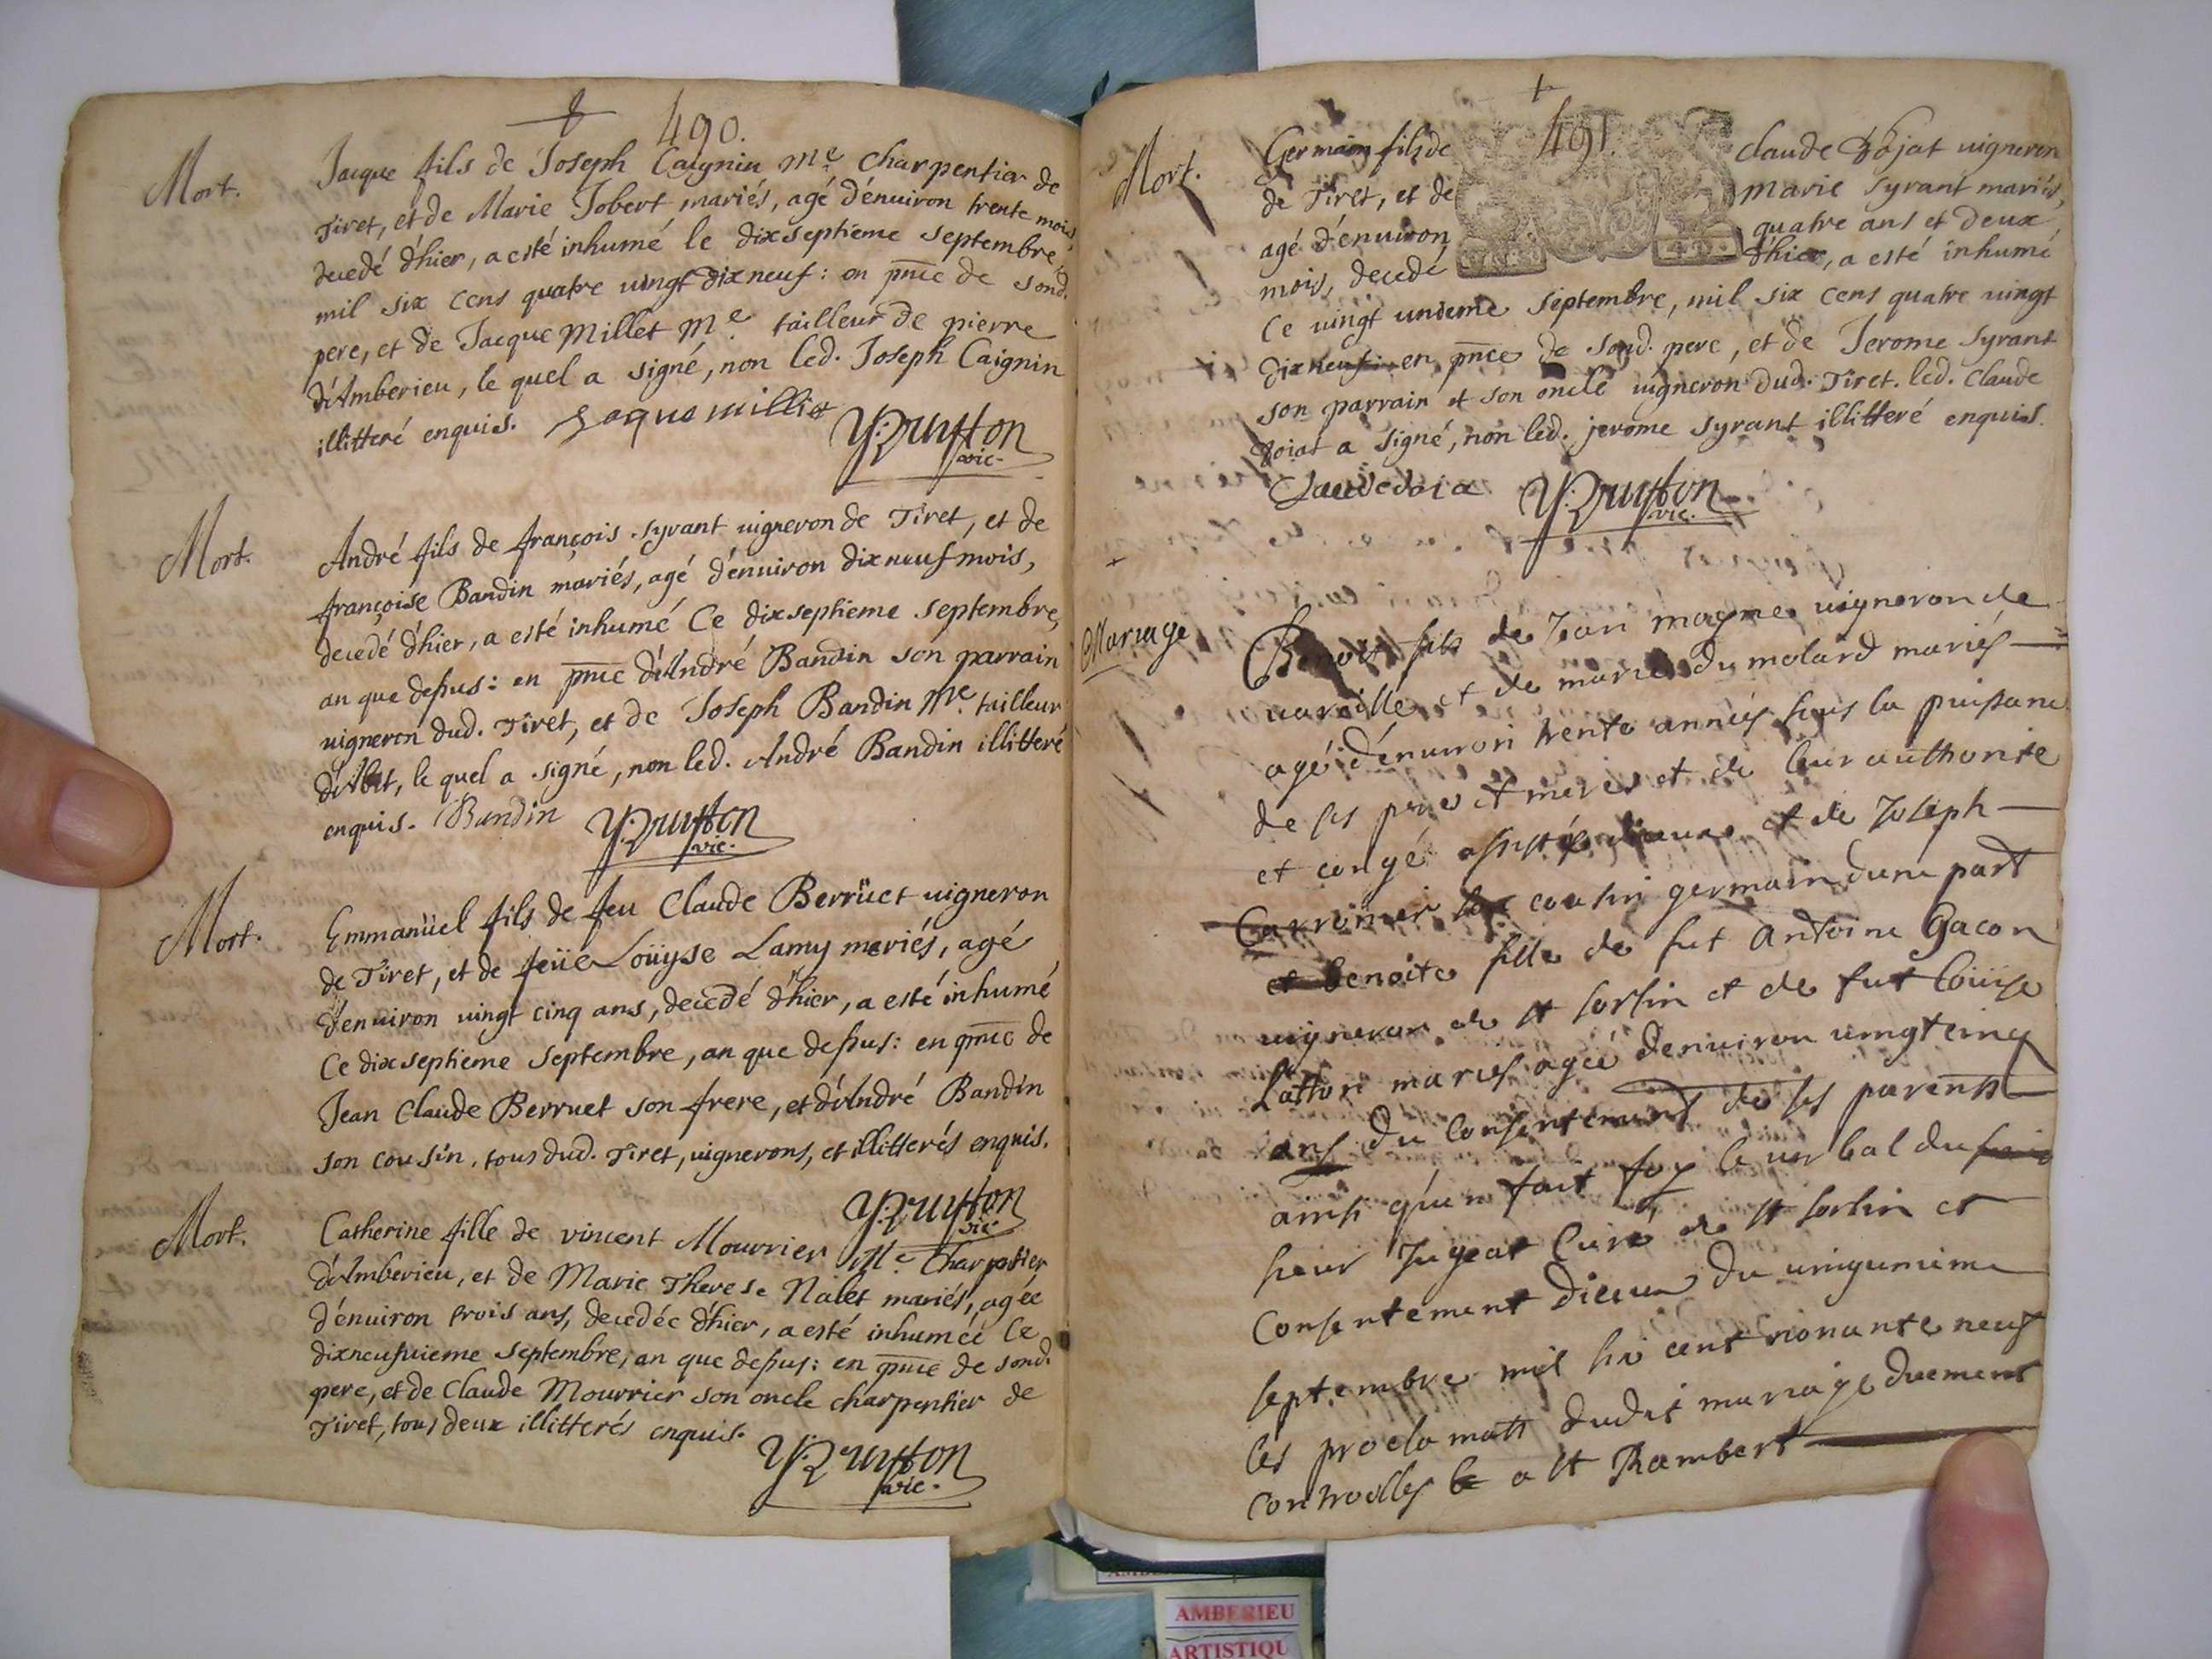 490.
Mort.
Jacque fils de Joseph Caignin Me charpentier de
Tiret, et de Marie Jobert mariés, agé d'enuiron trente mois,
decedé d'hier, a esté inhumé le dixseptieme septembre,
mil six cens quatre uingt dixneuf: en pnce de sond.
pere, et de Jacque Millet Me tailleur de pierre
d'Amberieu, le quel a signé, non led. Joseph Caignin
illitteré enquis. Jaque millet
vic.
Mort.
André fils de françois Syrant uigneron de Tiret, et de
françoise Bandin mariés, agé d'enuiron dixneuf mois,
decedé d'hier, a esté inhumé Ce dixseptieme septembre,
an que dessus: en pnce d'André Bandin son parrain
uigneron dud. Tiret, et de Joseph Bandin Me tailleur
d'Abt, le quel a signé, non led. André Bandin illitteré
enquis. Bandin
vic.
Mort.
Emmanüel fils de feu Claude Berrüet uigneron
de Tiret, et de feüe Loüyse Lamy mariés, agé
d'enuiron uingt cinq ans, decedé d'hier, a esté inhumé
Ce dixseptieme septembre, an que dessus: en pnce de
Jean Claude Berruet son frere, et d'André Bandin
son cousin, tous dud. Tiret, uignerons, et illitterés enquis.
vic.
Mort.
Catherine fille de vincent Mourrier Me Charpentier
d'Amberieu, et de Marie Therese Nalet mariés, agée
d'enuiron trois ans, decedée d'hier, a esté inhumée Ce
dixneufuieme septembre, an que dessus: en pnce de sond.
pere, et de Claude Mourrier son oncle charpentier de
Tiret, tous deux illitterés enquis.
vic.
491.
Mort.
Germain fils de claude Dojat uigneron
de Tiret, et de Marie Syrant mariés,
agé d'enuiron quatre ans et deux
mois, decedé d'hier, a esté inhumé
Ce uingt unieme septembre, mil six cens quatre uingt
dixneuf: en pnce de sond. pere, et de Jerome Syrant
son parrain et son oncle uigneron dud. Tiret. led. Claude
doiat a signé, non led. jerome Syrant illitteré enquis.
Claude doia
vic.
Mariage
Benoit fils de Jean magme uigneron de
uareille et de marie du molard mariés
agé d'enuiron trente années sous la puissance
de ses pere et mere et de leur authorité
et congé assisté et de Joseph
cousin germain d'une part
et benoite fille de fut Antoine Gacon
uigneron de st sorlin et de fut loüise
Latton mariés agée denuiron uingtcinq
ans du consentement de ses parents
ainsi qu'en fait foy le uerbal du
sieur Jugeat Curé de st sorlin et
consentement du
septembre mil six cent nonante neuf
les proclamatt dudit mariage duement
controlles a st Rambert
AMBERIEU
ARTISTIQU